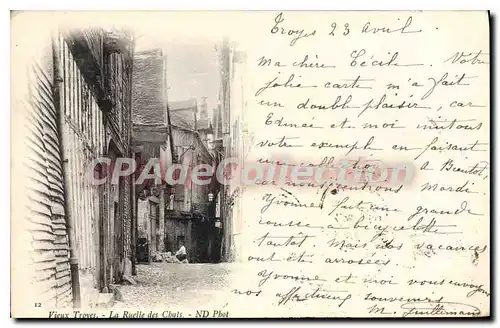 Troyes 23 Avril.
Ma chère Cécile. Votre
jolie carte m'a fait
un double plaisir, car
Edmée et moi imitons
votre exemple en faisant
une collection. A Bientôt
car nous rentrons Mardi
Yvonne fait une grande
course à bicyclette
tantôt. Mais nos vacances
ont été arrosées
Yvonne et moi vous envoyons
nos affectueux souvenirs
M. Guillemard
PCR
12
Vieux Troyes. - La Ruelle des Chats. - ND Phot